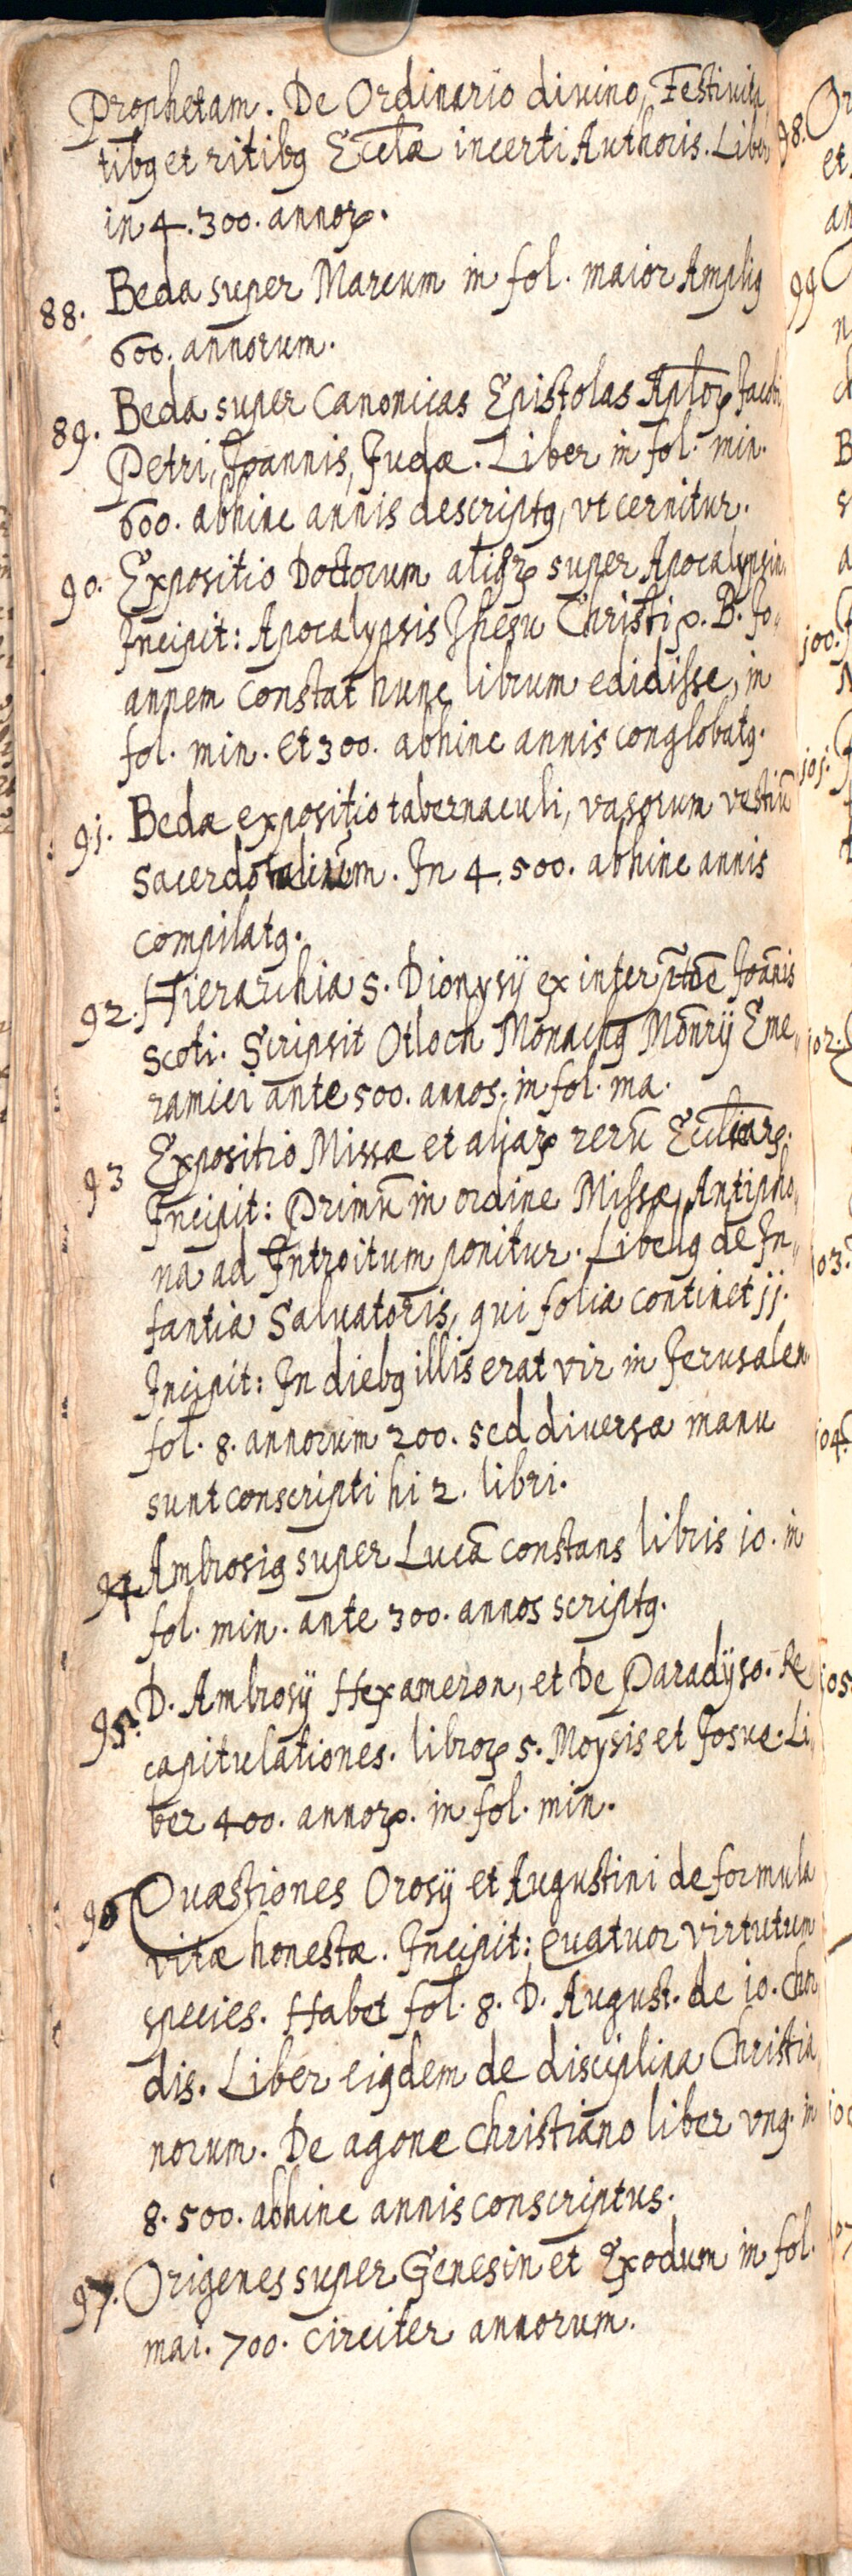 Prophetam. De Ordinario diuino, Festiuita
tibꝯ et ritibꝯ Eccłæ incerti Authoris. Liber
in 4. 300. annoꝝ.
88. Beda super Marcum in fol. maior Ampliꝯ
600. annorum.
89. Beda super Canonicas Epistolas Apłoꝝ Jacobi,
Petri, Joannis, Judæ. Liber in fol. min.
600. abhinc annis descriptꝯ, vt cernitur.
90. Expositio Doctorum super Apocalypsin.
Incipit: Apocalypsis Jhesu Christi p. B. Jo„
annem constat hunc librum edidisse, in
fol. min. et 300. abhinc annis conglobatꝯ.
91. Bedæ expositio tabernaculi, vasorum vestiū
Sacerdotalium. In 4. 500. abhinc annis
compilatꝯ.
92. Hierarchia S. Dionysij ex interp̃tõe Joãnis
Scoti. Scripsit Otloch Monachꝯ Moñrij Eme„
ramici ante 500. annos. in fol. ma.
93 Expositio Missæ et aliaꝝ rerū Eccliaꝝ.
Incipit: Primū in ordine Missæ Antipho„
na ad Introitum ponitur. Libellꝯ de In„
fantia Saluatoris, qui folia continet jj.
Incipit: In diebꝯ illis erat vir in Jerusalem
fol. 8. annorum 200. sed diuersa manu
sunt conscripti hi 2. libri.
94. Ambrosiꝯ super Lucā constans libris jo. in
fol. min. ante 300. annos scriptꝯ.
95. D. Ambrosij Hexameron, et De Paradijso. Re
capitulationes. libroꝝ 5. Moysis et Josue. Li„
ber 400. annoꝝ. in fol. min.
96 Quæstiones Orosij et Augustini de formula
vitæ honestæ. Incipit: Quatuor virtutum
species. Habet fol. 8. D. August. de jo. chor
dis. Liber eiꝯdem de disciplina Christia
norum. De agone christiano liber vnꝯ. in
8. 500. abhinc annis conscriptus.
97. Origenes super Genesin et Exodum in fol.
mai. 700. circiter annorum.
98. Or
et
an
99
n
B
100.
joj.
102.
103.
104.
105